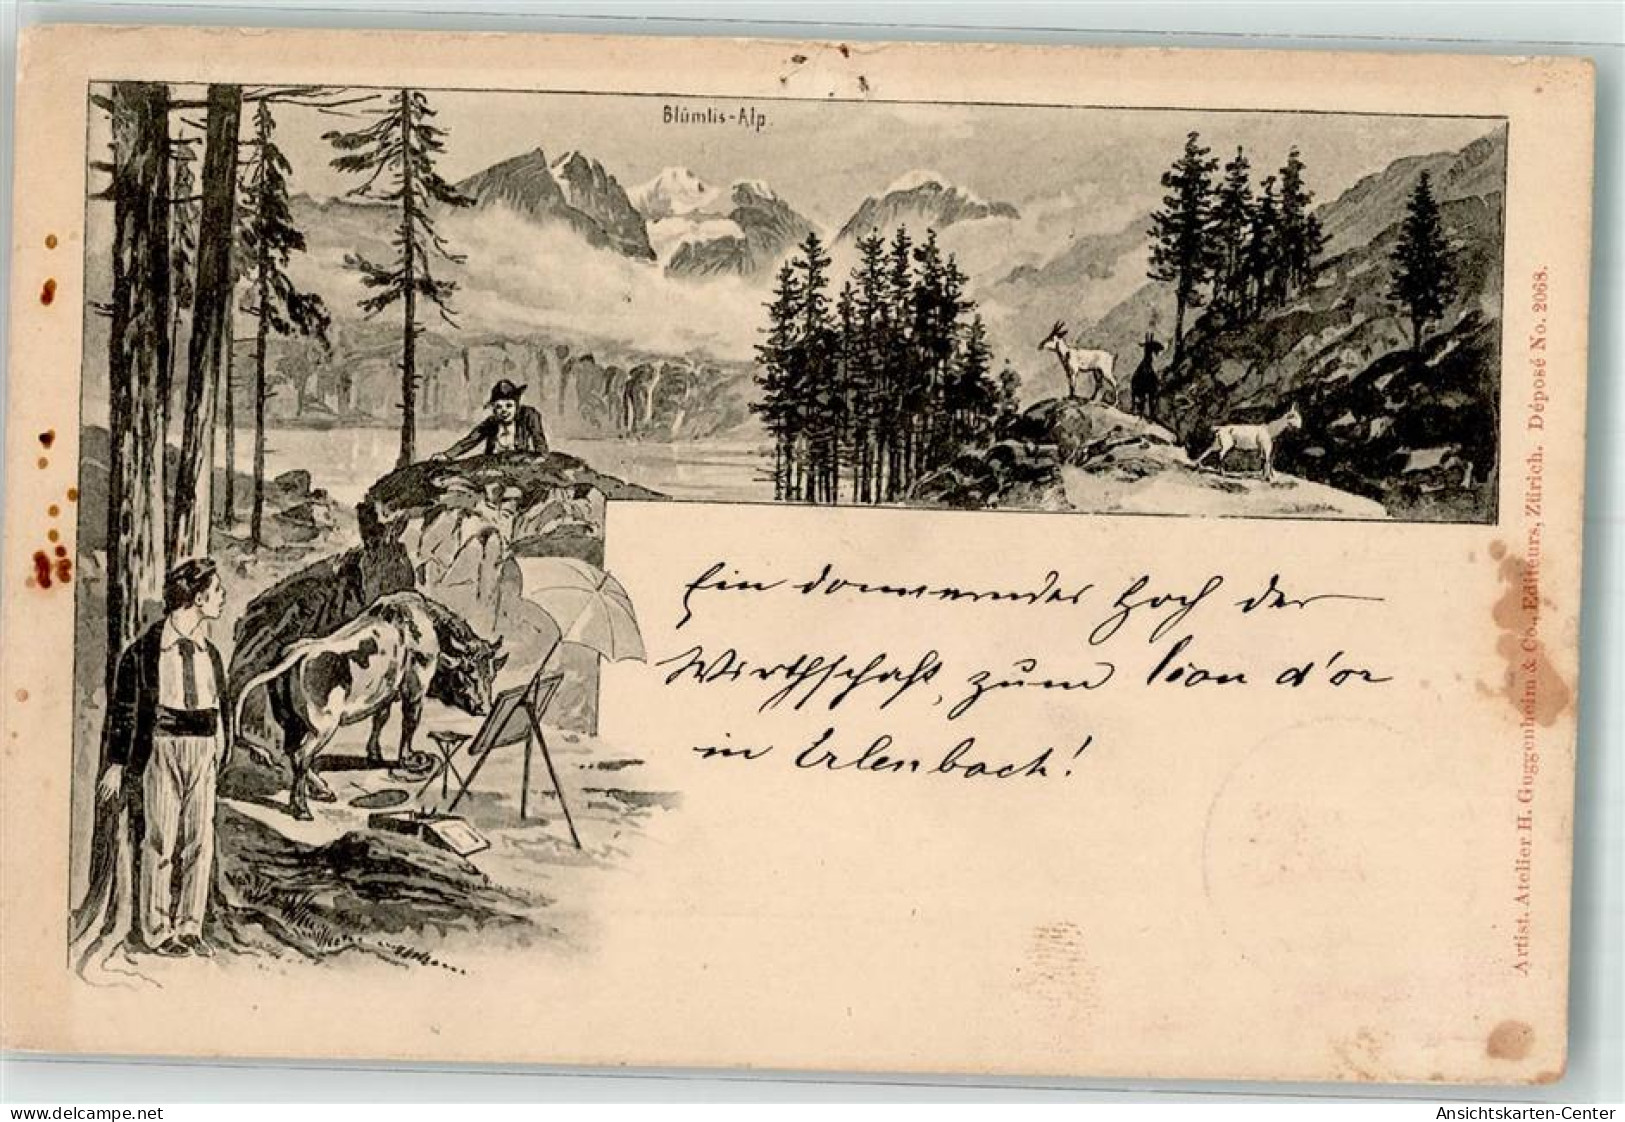 Blümlis-Alp.
Ein donnerndes Hoch der
Wirthschaft, zum lion d'or
in Erlenbach!
Artist. Atelier H. Guggenheim & Co., Editeurs, Zürich. Déposé No. 2068.
www.delcampe.net
Ansichtskarten-Center